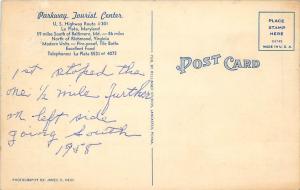 Parkway Tourist Center
U. S. Highway Route #301
La Plata, Maryland
59 miles South of Baltimore, Md. — 86 miles
North of Richmond, Virginia
Modern Units — Fire-proof, Tile Baths
Excellent Food
Telephones: La Plata 5931 or 4075
1st stopped the
one ½ mile further
on left side
going South
1958
POST CARD
PLACE
STAMP
HERE
MADE IN U. S. A.